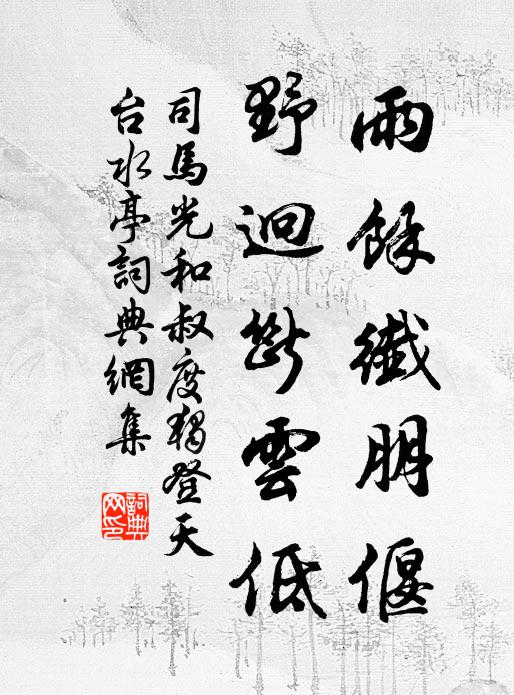 雨餘纖朋偃
野迥斷雲低
司馬光和叔度獨登天
台水亭詞典網集
詞典
网印